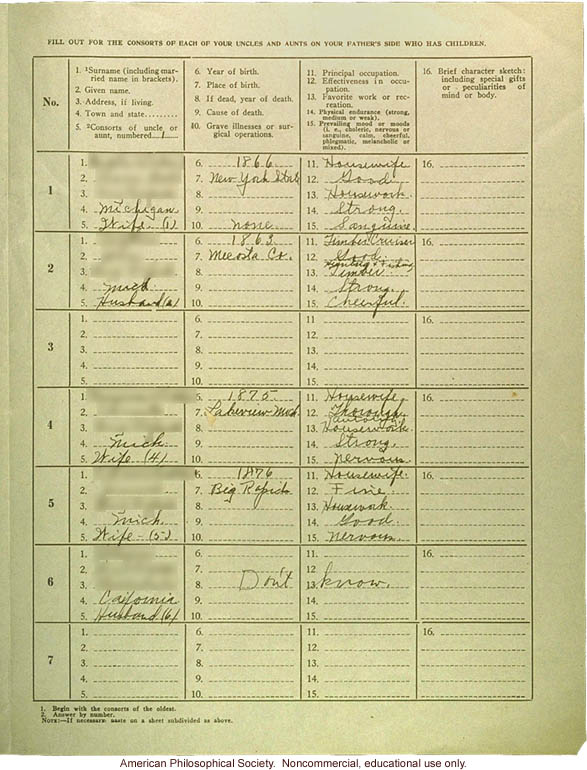 FILL OUT FOR THE CONSORTS OF EACH OF YOUR UNCLES AND AUNTS ON YOUR FATHER'S SIDE WHO HAS CHILDREN.
No.
1. ¹Surname (including married name in brackets).
2. Given name.
3. Address, if living.
4. Town and state.........
5. ²Consorts of uncle or aunt, numbered 1
6. Year of birth.
7. Place of birth.
8. If dead, year of death.
9. Cause of death.
10. Grave illnesses or surgical operations.
11. Principal occupation.
12. Effectiveness in occupation.
13. Favorite work or recreation.
14. Physical endurance (strong, medium or weak).
15. Prevailing mood or moods (i. e., choleric, nervous or sanguine, calm, cheerful, phlegmatic, melancholic or mixed).
16. Brief character sketch: including special gifts or peculiarities of mind or body.
1
1.
2.
3.
4. Michigan
5. Wife (1)
6. 1866
7. New York State
8.
9.
10. none
11. Housewife
12. Good
13. Housework
14. Strong
15. Sanguine
16.
2
1.
2.
3.
4. Mich
5. Husband (2)
6. 1863
7. Mecosta Co.
8.
9.
10.
11. Timber Cruiser
12. Good
Hunting & Fishing
13. Timber
14. Strong
15. Cheerful.
16.
3
1.
2.
3.
4.
5.
6.
7.
8.
9.
10.
11.
12.
13.
14.
15.
16.
4
1.
2.
3.
4. Mich
5. Wife (4)
6. 1875
7. Lakeview Mich
8.
9.
10.
11. Housewife
12. Thorough
13. Housework
14. Strong
15. Nervous
16.
5
1.
2.
3.
4. Mich
5. Wife - (5)
6. 1876
7. Big Rapids
8.
9.
10.
11. Housewife.
12. Fine
13. Housework
14. Good
15. Nervous
16.
6
1.
2.
3.
4. California
5. Husband (6)
6.
7.
8. Don't
9.
10.
11.
12.
13. know.
14.
15.
16.
7
1.
2.
3.
4.
5.
6.
7.
8.
9.
10.
11.
12.
13.
14.
15.
16.
1. Begin with the consorts of the oldest.
2. Answer by number.
NOTE:—If necessary paste on a sheet subdivided as above.
American Philosophical Society. Noncommercial, educational use only.